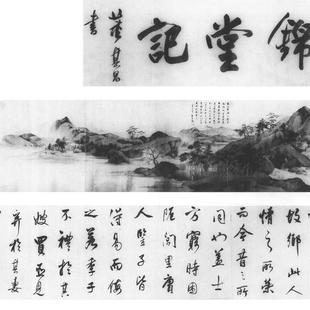 錦堂記
董其昌
書
故鄉此人
情之所榮
而今昔之所
同也蓋士
方窮時困
阨閭里庸
人孺子皆
得易而侮
之若季子
不禮於其
嫂買臣見
棄於其妻